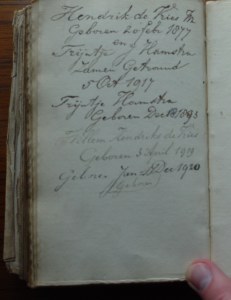 Hendrik de Vries
Geboren 20 feb 1877
en
Trijntje Hamstra
samen Getrouwd
5 Oct 1917
Trijntje Hamstra
Geboren
Willem Hendriks de Vries
Geboren 3 April 1919
Geboren Jan 1920
Geboren